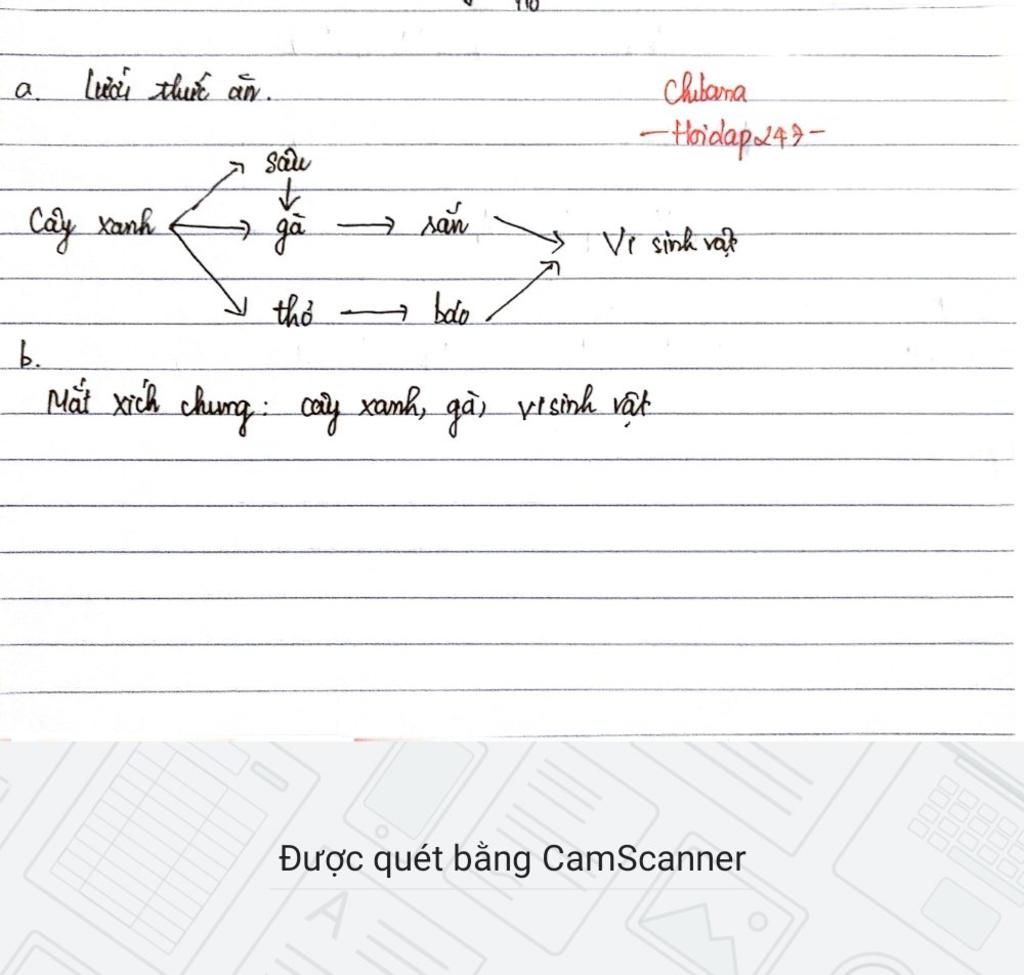 a. Lưới thức ăn.
Chibana
- Hoidap247 -
sâu
Cây xanh gà sắn Vi sinh vật
thỏ báo
b.
Mắt xích chung: cây xanh, gà, vi sinh vật
Được quét bằng CamScanner